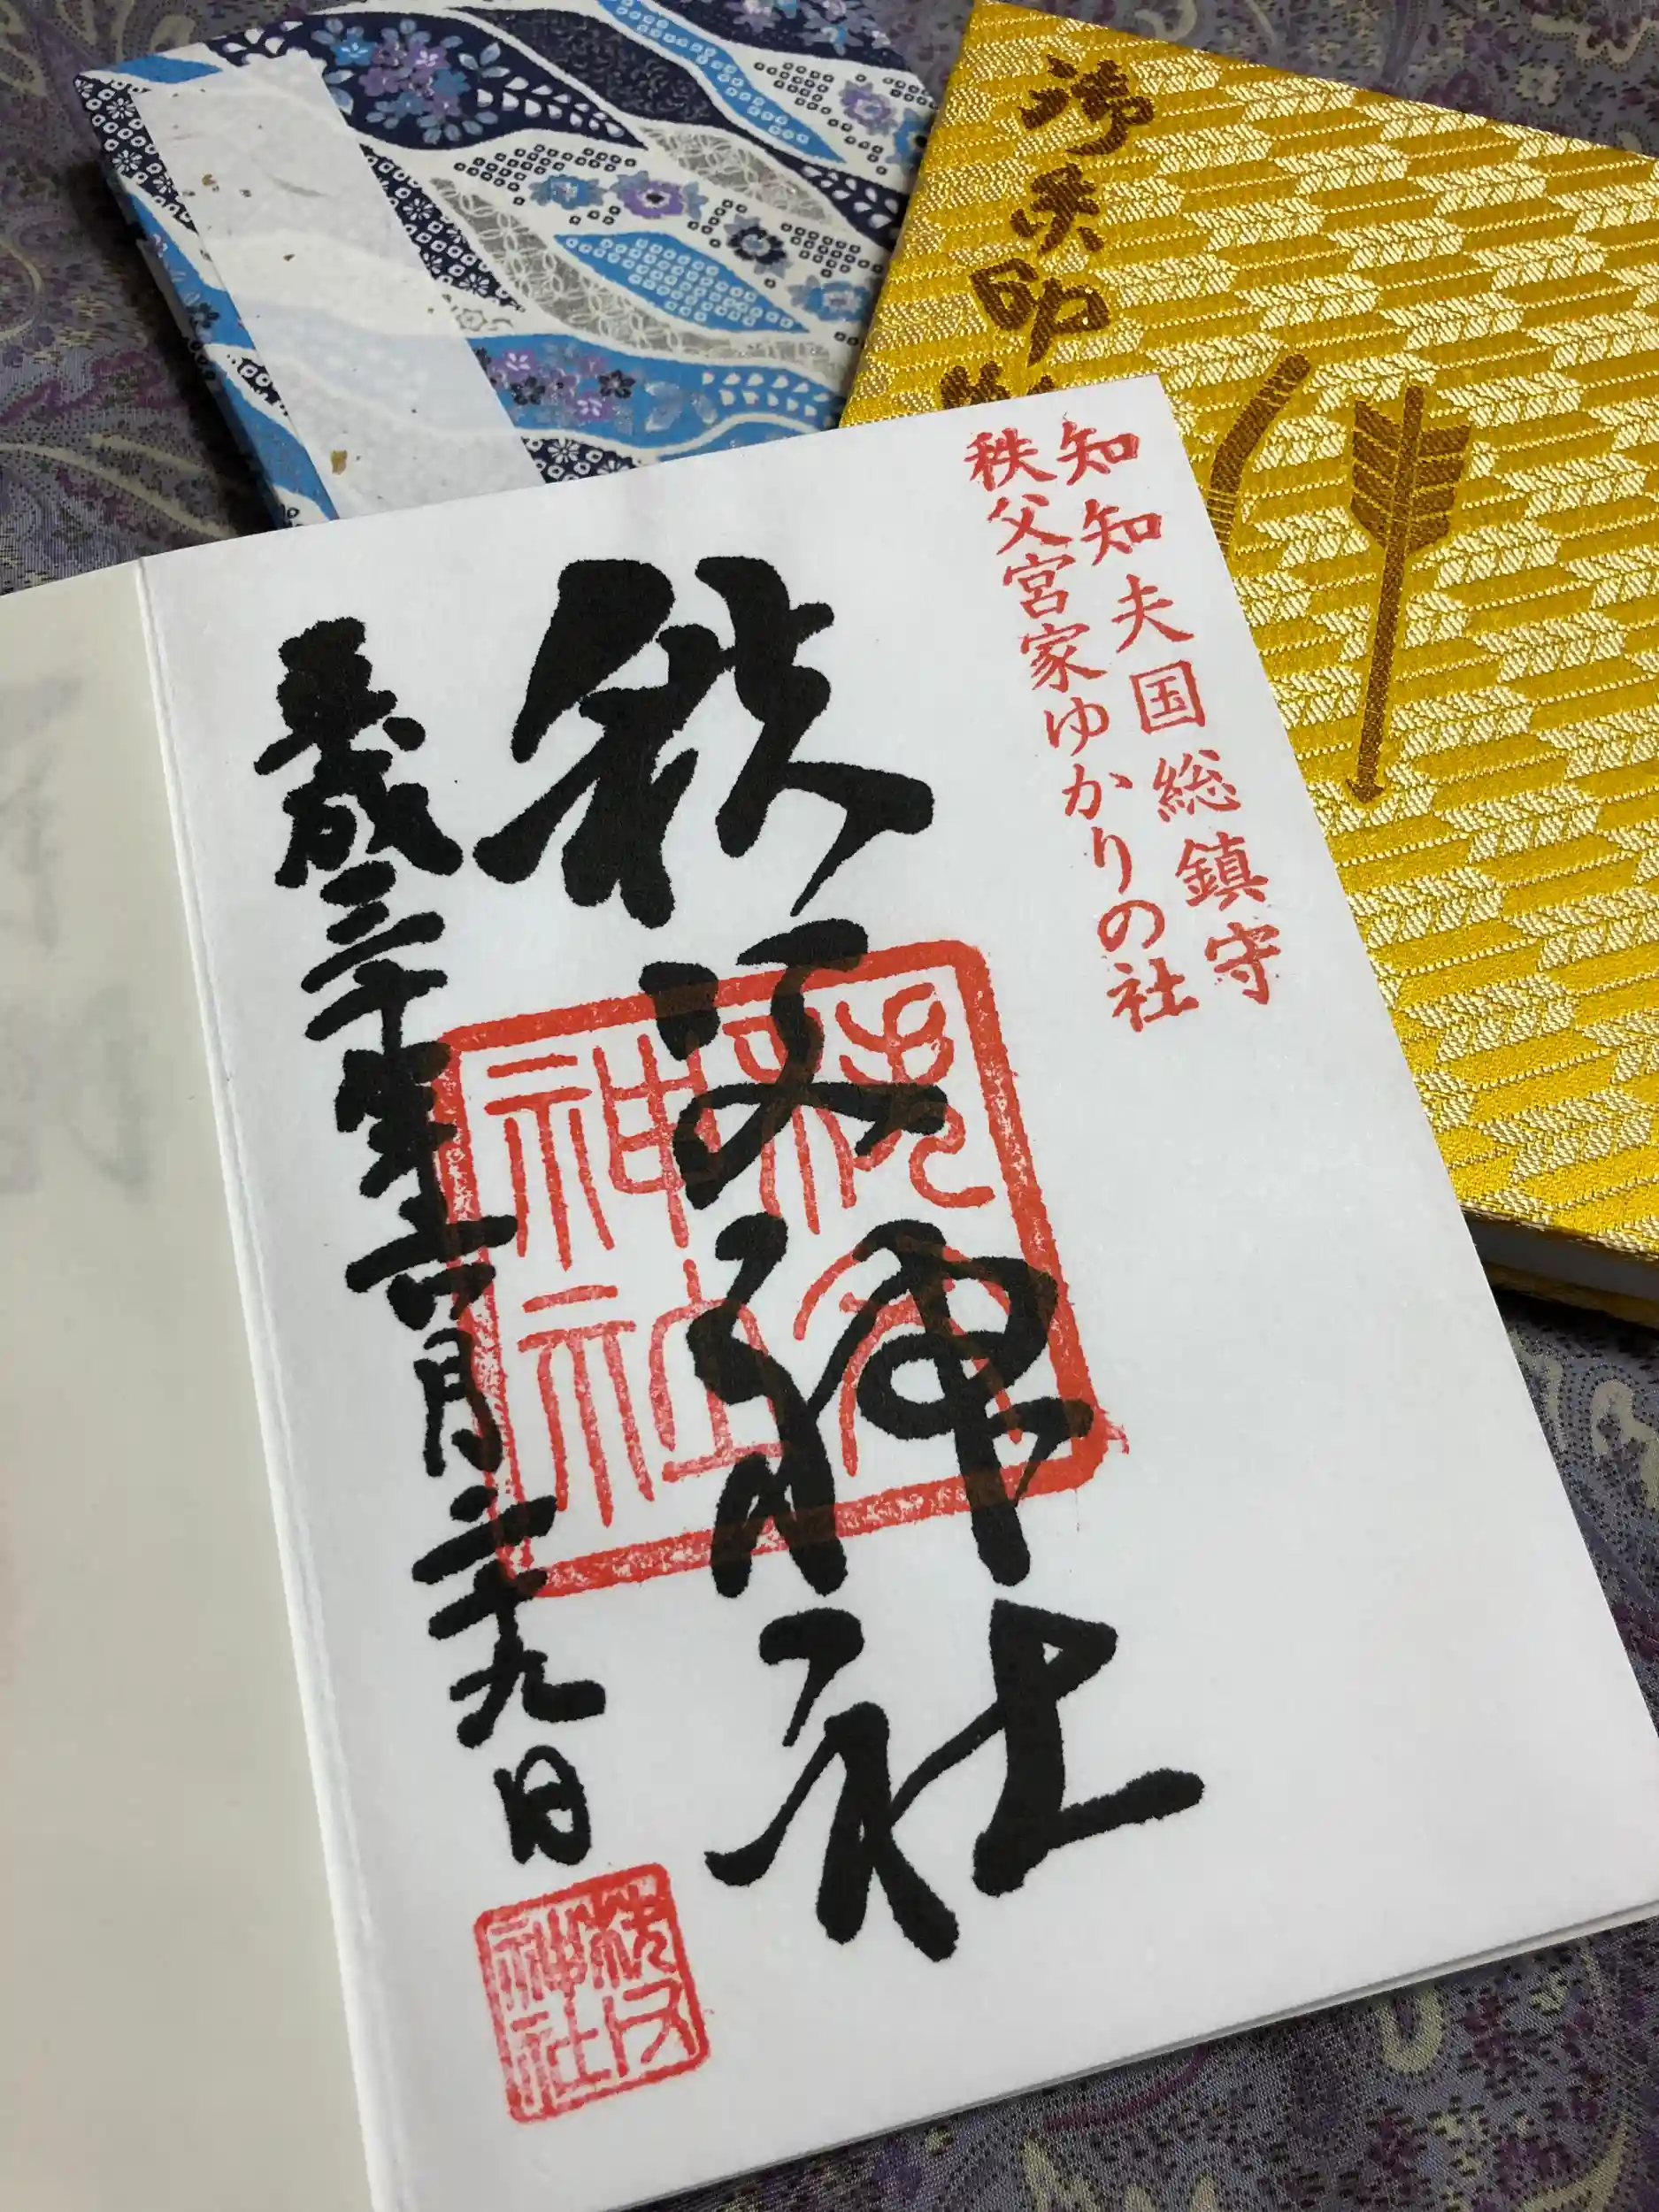 御朱印
知知夫国総鎮守
秩父宮家ゆかりの社
秩父神社
平成三十年六月二十九日
秩父神社
秩父神社